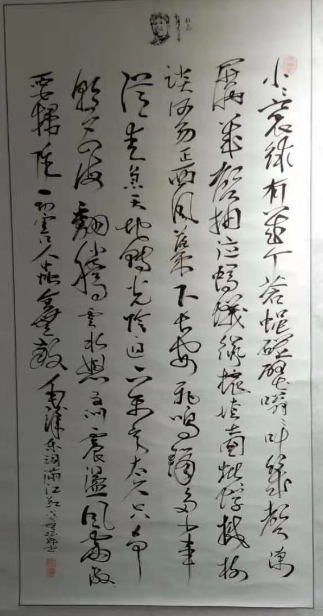 小小寰球有幾个苍蝇碰壁嗡嗡叫幾聲凄
厲幾聲抽泣螞蟻缘槐夸大国蚍蜉撼树
谈何易正西风葉下长安飞鸣镝多少事
从来急天地转光阴迫一万年太久只争
朝夕四海翻腾云水怒五洲震荡风雷激
要扫除一切害人虫全无敌 毛泽东词满江红